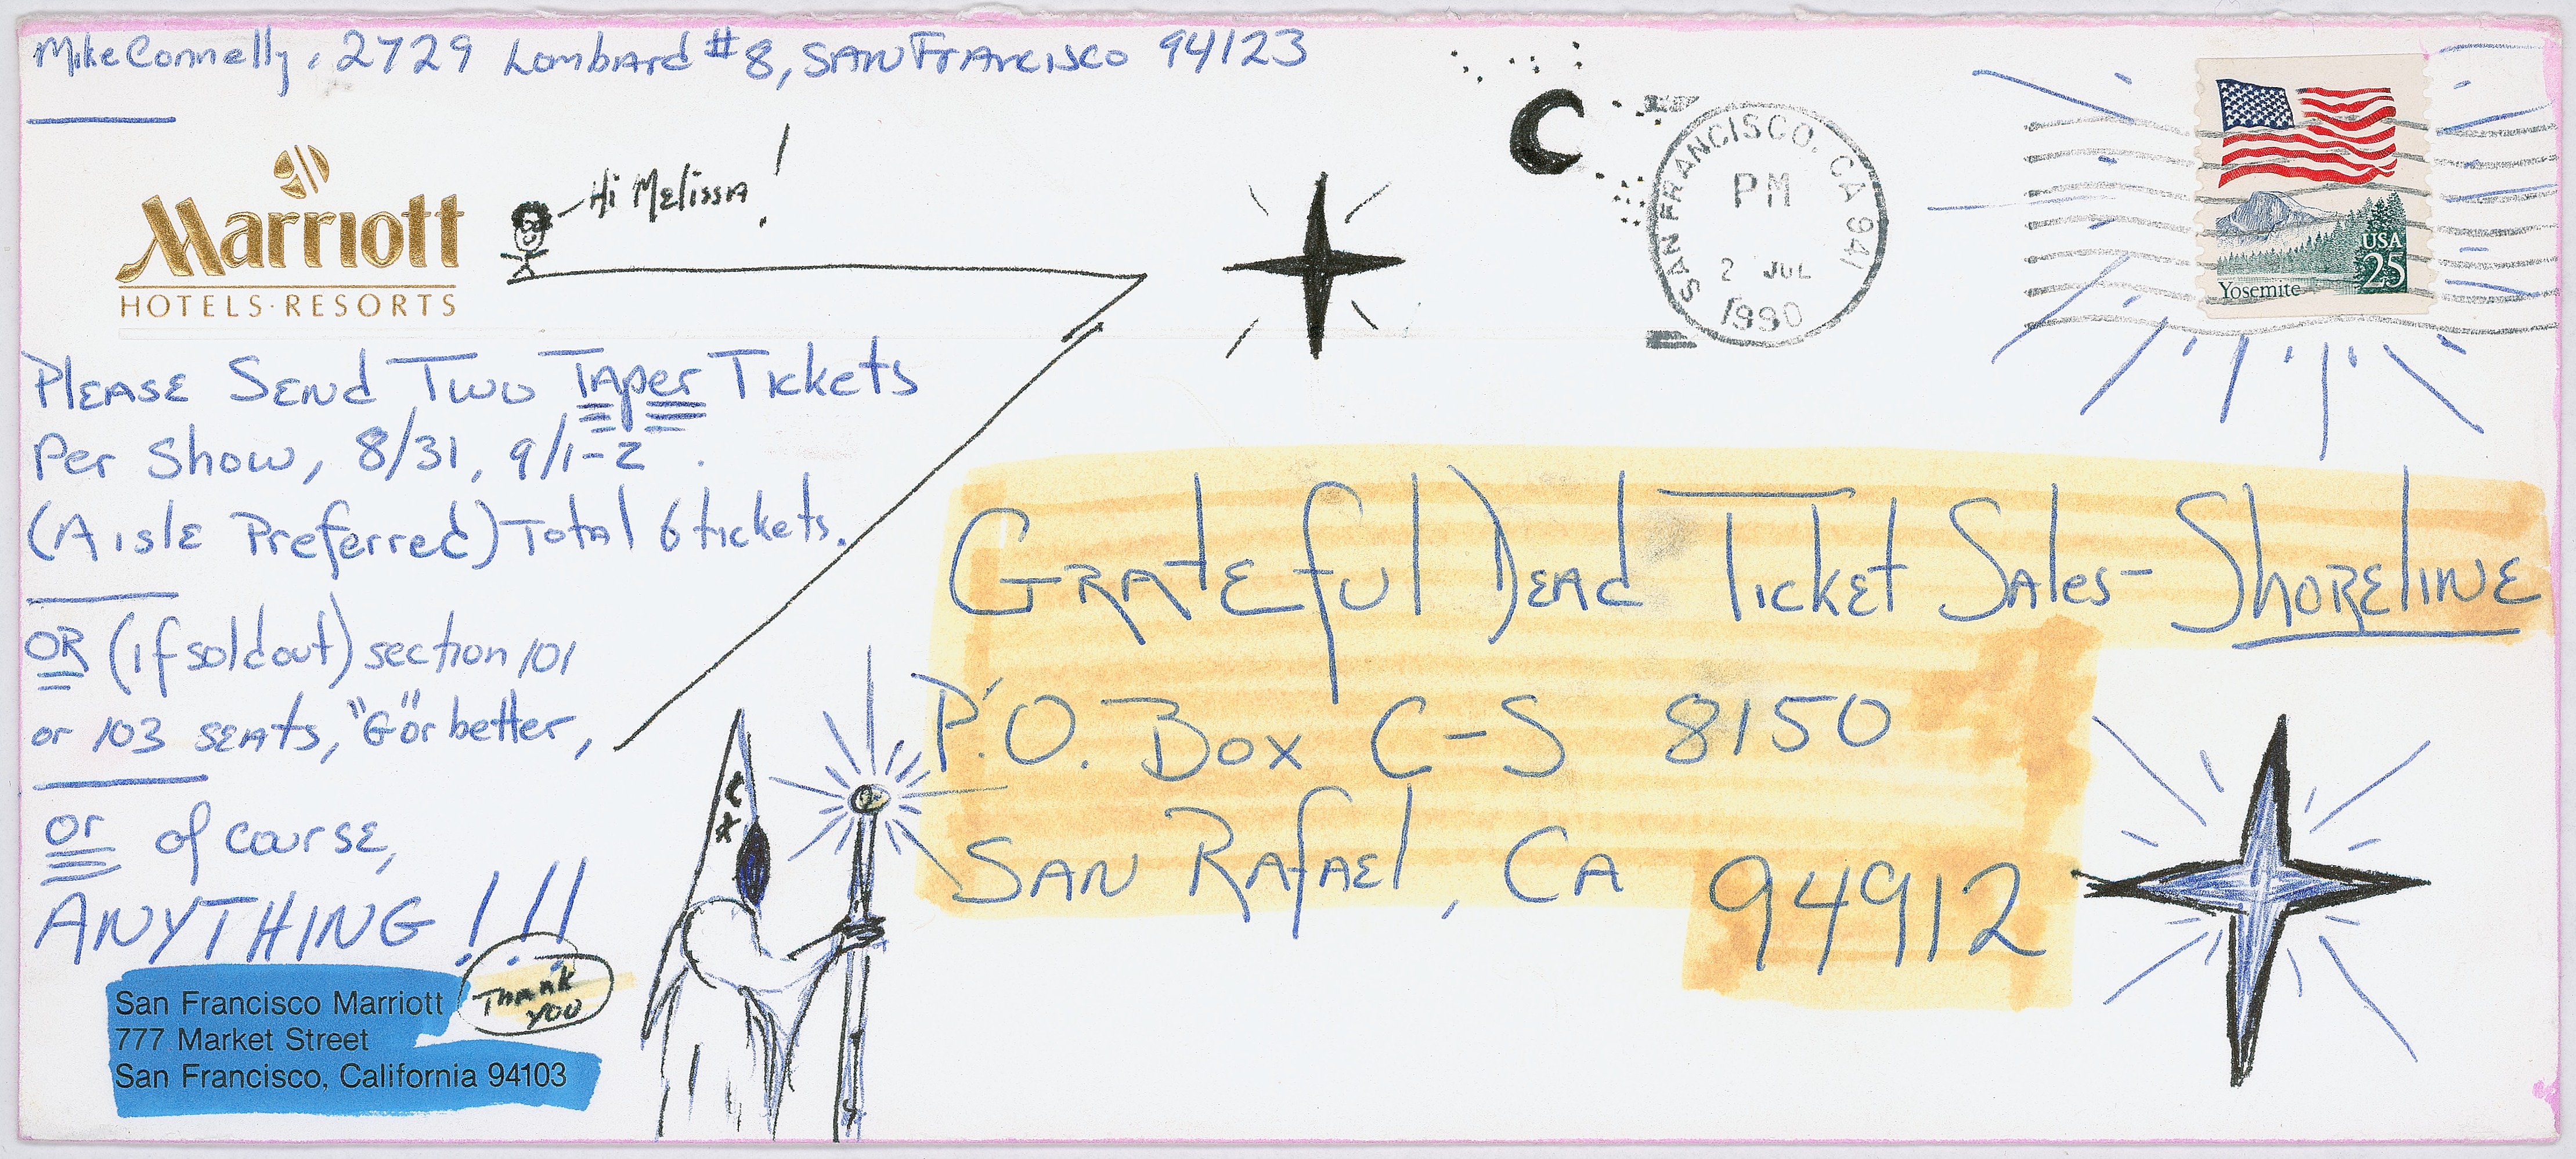 Mike Connelly, 2729 Lombard #8, SAN FRANCISCO 94123
Marriott
HOTELS·RESORTS
Hi Melissa!
SAN FRANCISCO, CA 941
PM
2 JUL
1990
USA
25
Yosemite
PLEASE SEND TWO TAPER TICKETS
Per Show, 8/31, 9/1-2.
(Aisle Preferred) Total 6 tickets.
OR (if sold out) section 101
or 103 seats, "G" or better,
or of course,
ANYTHING!!!
Thank
YOU
San Francisco Marriott
777 Market Street
San Francisco, California 94103
GRATEFUL DEAD TICKET SALES- SHORELINE
P.O. Box C-S 8150
SAN RAFAEL, CA 94912